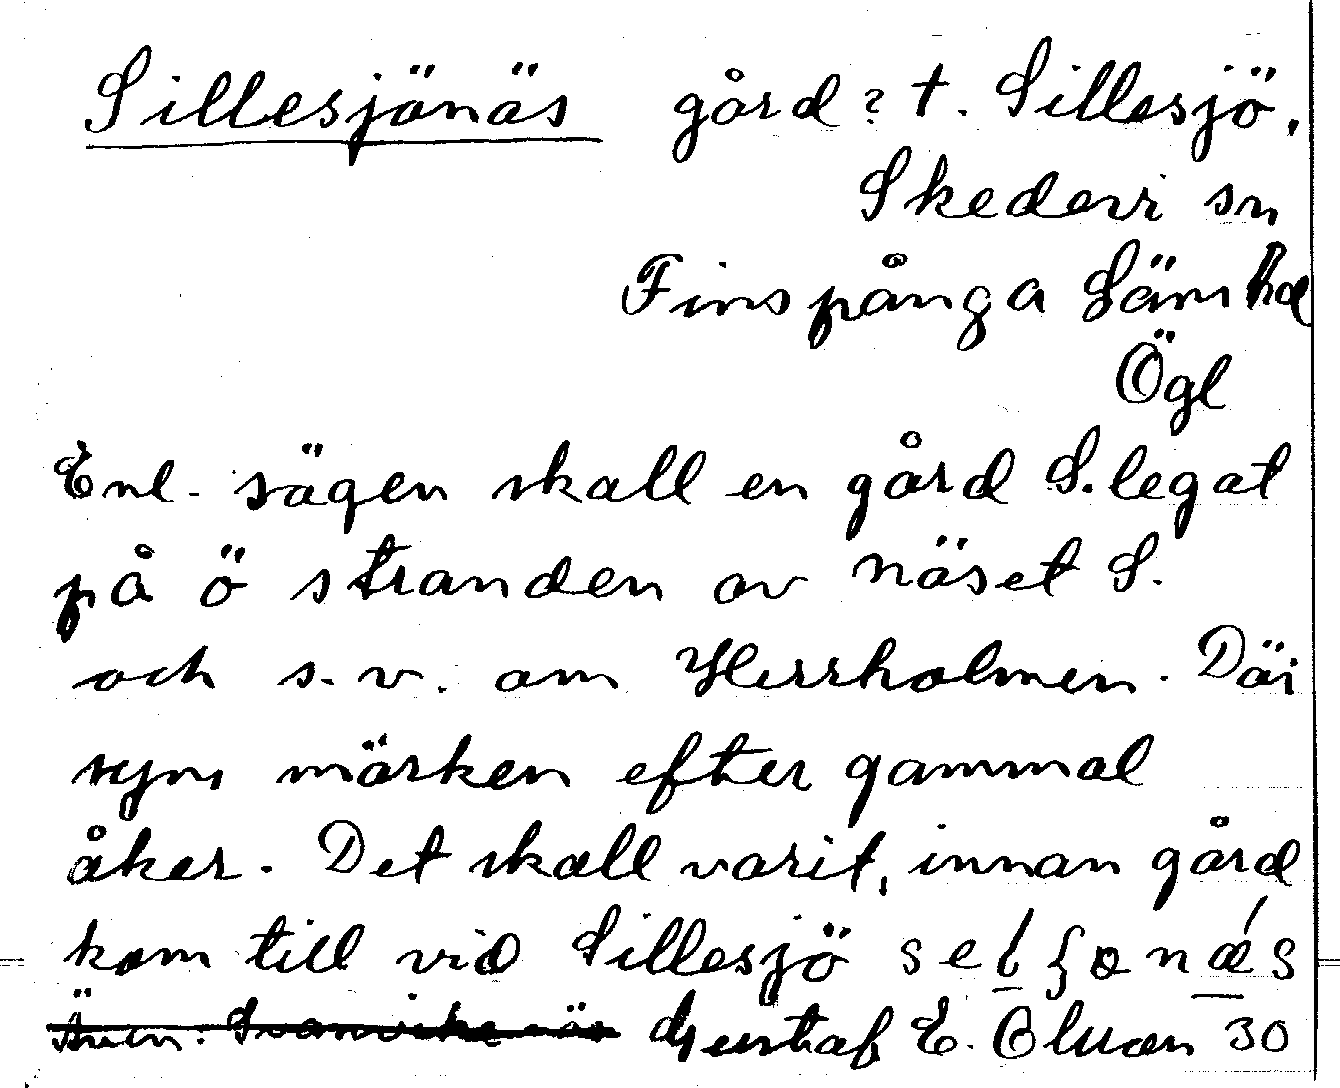 Sillesjönäs gård? t. Sillesjö,
Skedevi sn
Finspånga läns hd
Ögl
Enl. sägen skall en gård S. legat
på ö stranden av näset S.
och s.v. om Herrholmen. Där
syns märken efter gammal
åker. Det skall varit, innan gård
kom till vid Sillesjö
Även: Svanvike näs Gustaf E. Olsson 30